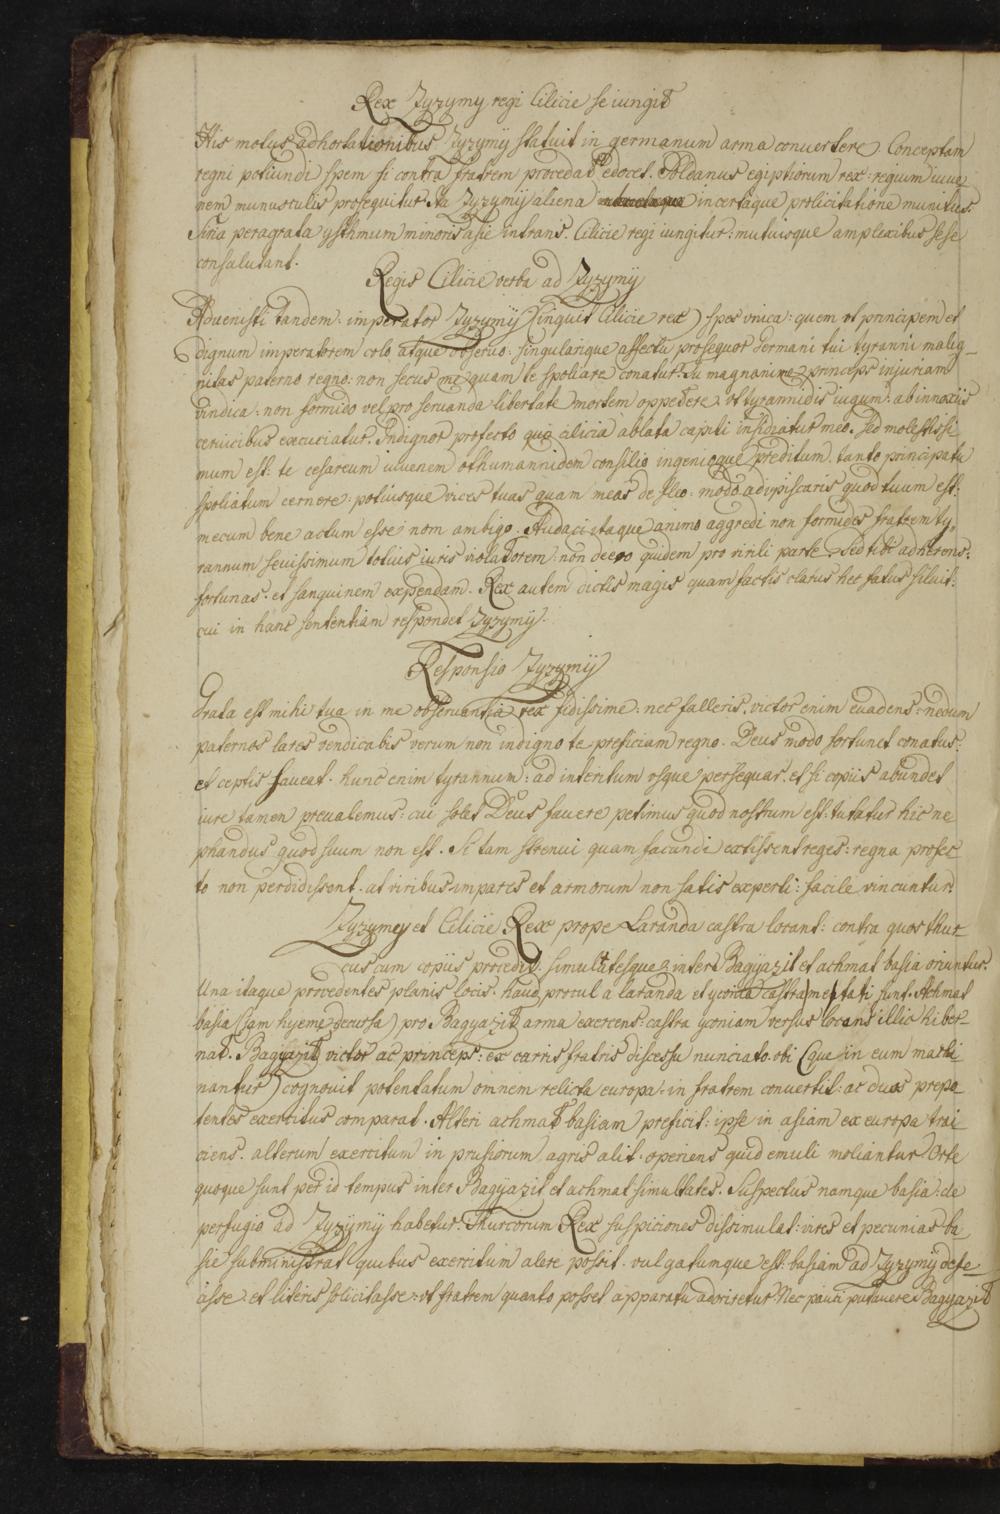 Rex Zyzymy regi Cilicie se iungit
His motus adhortationibus Zyzymy statuit in germanum arma convertere. Conceptam
regni potiundi spem si contra fratrem procedat edocet. Soldanus egiptiorum rex: regium iuve
nem munusculis prosequitur. Ita Zyzymy aliena incertaque prolicitatione munitus.
Siria peragrata ysthmum minoris asie intrans. Cilicie regi iungitur: mutuisque amplexibus sese
consalutant.
Regis Cilicie verba ad Zyzymy
Advenisti tandem: imperator Zyzymy (inquit Cilicie rex) spes unica: quem ut principem et
dignum imperatorem colo atque observo: singularique affectu prosequor Germani tui tyranni malig_
nitas paterno regno: non secus me quam te spoliare conatur. Tu magnanime princeps injuriam
vindica: non formido vel pro servanda libertate mortem oppetere: ut tyrannidis iugum: ab innoxiis
cervicibus excuciatur. Indignor profecto quia cilicia ablata capiti insidiatur meo. Sed molestissi
mum est: te cesareum iuvenem othumannidem consilio ingenioque preditum. tanto principatu
spoliatum cernere: potiusque vices tuas quam meas defleo: modo adipiscaris quod tuum est:
mecum bene actum esse nom ambigo. Audaci itaque animo aggredi non formides fratrem ty,
rannum sevissimum totius iuris violatorem: non deero quidem pro virili parte. Sed tibi adherens:
fortunas. et sanguinem expendam. Rex autem dictis magis quam factis clarus hec fatus siluit:
cui in hanc sententiam respondet Zyzymy.
Responsio Zyzymy
Grata est mihi tua in me observantia rex fidissime: nec falleris. victor enim evadens: nedum
paternos lares vendicabis verum non indigno te preficiam regno. Deus modo fortunet conatus:
et ceptis faveat. hunc enim tyrannum: ad interitum usque persequar. et si copiis abundet
iure tamen prevalemus: cui solet Deus favere petimus quod nostrum est: tutatur hic ne
phandus quod suum non est. Si tam strenui quam facundi extissent reges: regna profec
to non perdidissent. at viribus impares et armorum non satis experti: facile vincuntur.
Zyzymy et Cilicie Rex prope Laranda castra locant: contra quos thur
cus cum copiis procedit: simultatesque inter Bagyazit et achmat basia oriuntur.
Una itaque procedentes planis locis. haud procul a laranda et yconia castrametati sunt. Achmat
basia (jam hyeme decursa) pro Bagyazit arma exercens: castra yconiam versus locans illic hiber_
nat. Bagyazit victor ac princeps: ex carris fratris discessu nunciato. ubi (que in eum machi
nantur) cognovit potentatum omnem relicta europa: in fratrem convertit: ac duos prepo
tentes exercitus comparat. Alteri achmat basiam preficit: ipse in asiam ex europa trai
ciens. alterum exercitum in prusiorum agris alit. operiens quid emuli moliantur Orte
quoque sunt per id tempus inter Bagyazit et achmat simultates. Suspectus namque basia: de
perfugio ad Zyzymy habetur. Thurcorum Rex suspiciones dissimulat: vires et pecunias ba
sie subministrat quibus exercitum alere possit. vulgatumque est: basiam ad Zyzymy defe_
cisse: et literis solicitasse: ut fratrem quanto posset apparatu adoriretur Nec pauci putavere Bagyazit